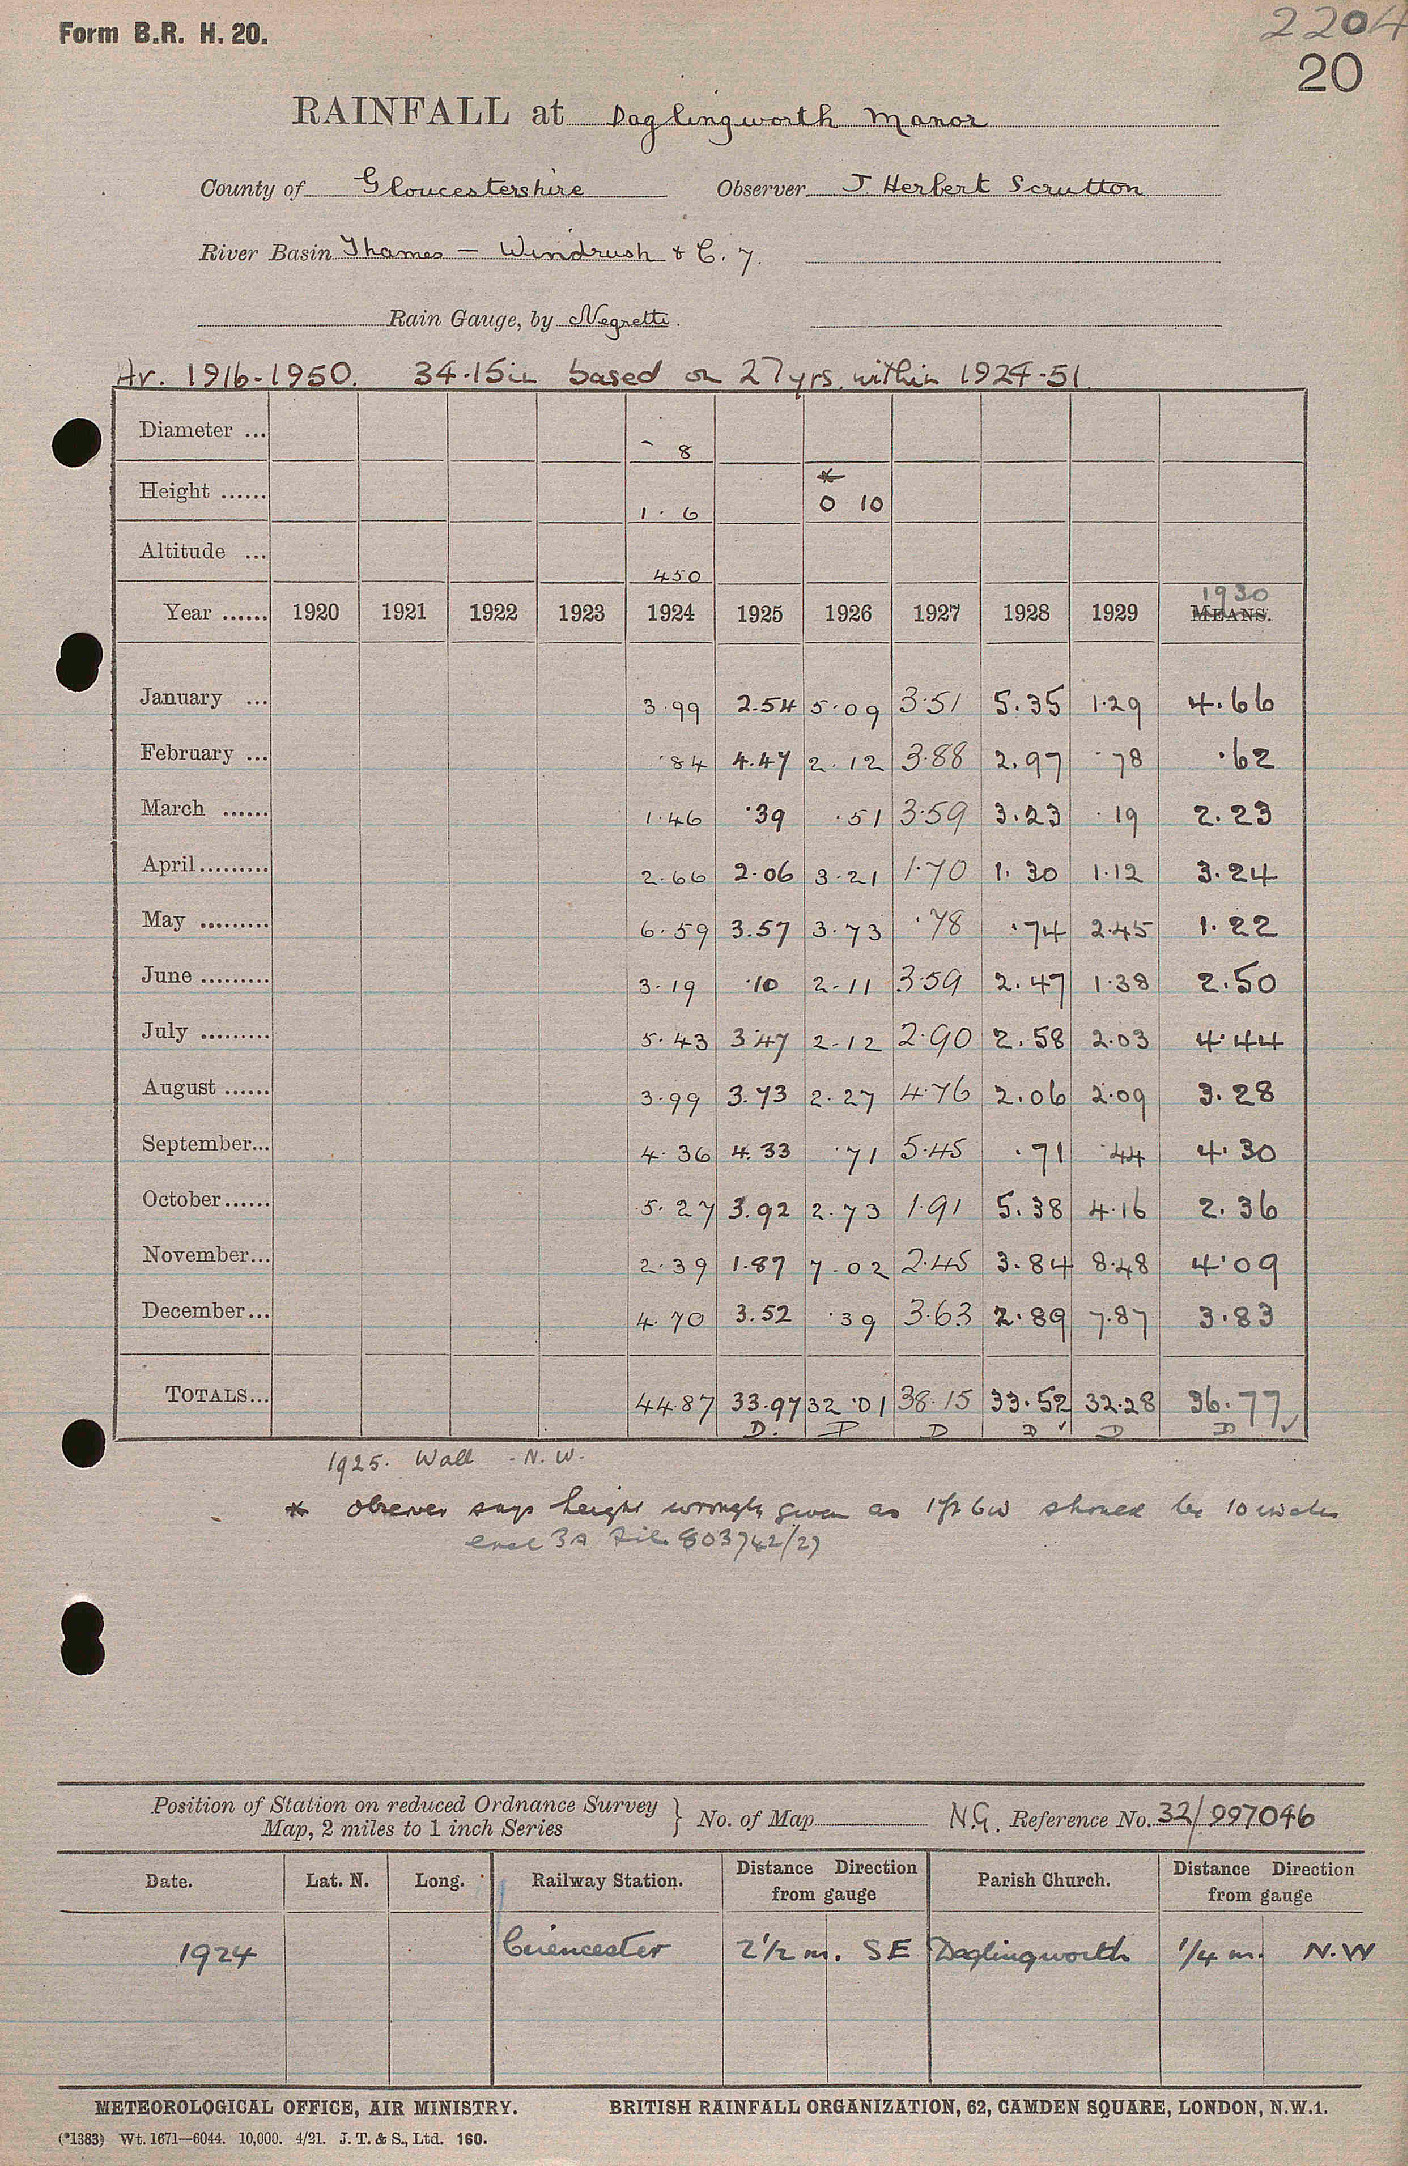 Form B.R. H. 20.
2204
20
RAINFALL at Daglingworth Manor
County of Gloucestershire Observer J. Herbert Scrutton
River Basin Thames — Windrush & C. 7.
Rain Gauge, by Negretti.
Av. 1916-1950. 34.15in based on 27yrs. within 1924-51.
Diameter ... 8
Height ...... 1. 6 * 0 10
Altitude ... 450
Year ...... 1920 1921 1922 1923 1924 1925 1926 1927 1928 1929 MEANS. 1930
January ... 3.99 2.54 5.09 3.51 5.35 1.29 4.66
February ... .84 4.47 2.12 3.88 2.97 .78 .62
March ...... 1.46 .39 .51 3.59 3.23 .19 2.23
April ......... 2.66 2.06 3.21 1.70 1.30 1.12 3.24
May ......... 6.59 3.57 3.73 .78 .74 2.45 1.22
June ......... 3.19 .10 2.11 3.59 2.47 1.38 2.50
July ......... 5.43 3.47 2.12 2.90 2.58 2.03 4.44
August ...... 3.99 3.73 2.27 4.76 2.06 2.09 3.28
September... 4.36 4.33 .71 5.45 .71 .44 4.30
October...... 5.27 3.92 2.73 1.91 5.38 4.16 2.36
November... 2.39 1.87 7.02 2.45 3.84 8.48 4.09
December... 4.70 3.52 .39 3.63 2.89 7.87 3.83
TOTALS... 44.87 33.97 32.01 38.15 33.52 32.28 36.77
D. D D D ✓ D D ✓
1925. Wall - N.W.
* Observer says height wrongly given as 1ft 6in should be 10 inches
encl 3A File 803742/27
Position of Station on reduced Ordnance Survey Map, 2 miles to 1 inch Series } No. of Map N.G. Reference No. 32/997046
Date. Lat. N. Long. Railway Station. Distance Direction from gauge Parish Church. Distance Direction from gauge
1924 Cirencester 2 1/2 m. SE Daglingworth 1/4 m. N.W
METEOROLOGICAL OFFICE, AIR MINISTRY. BRITISH RAINFALL ORGANIZATION, 62, CAMDEN SQUARE, LONDON, N.W.1.
(*1383) Wt. 1671—6044. 10,000. 4/21. J. T. & S., Ltd. 160.